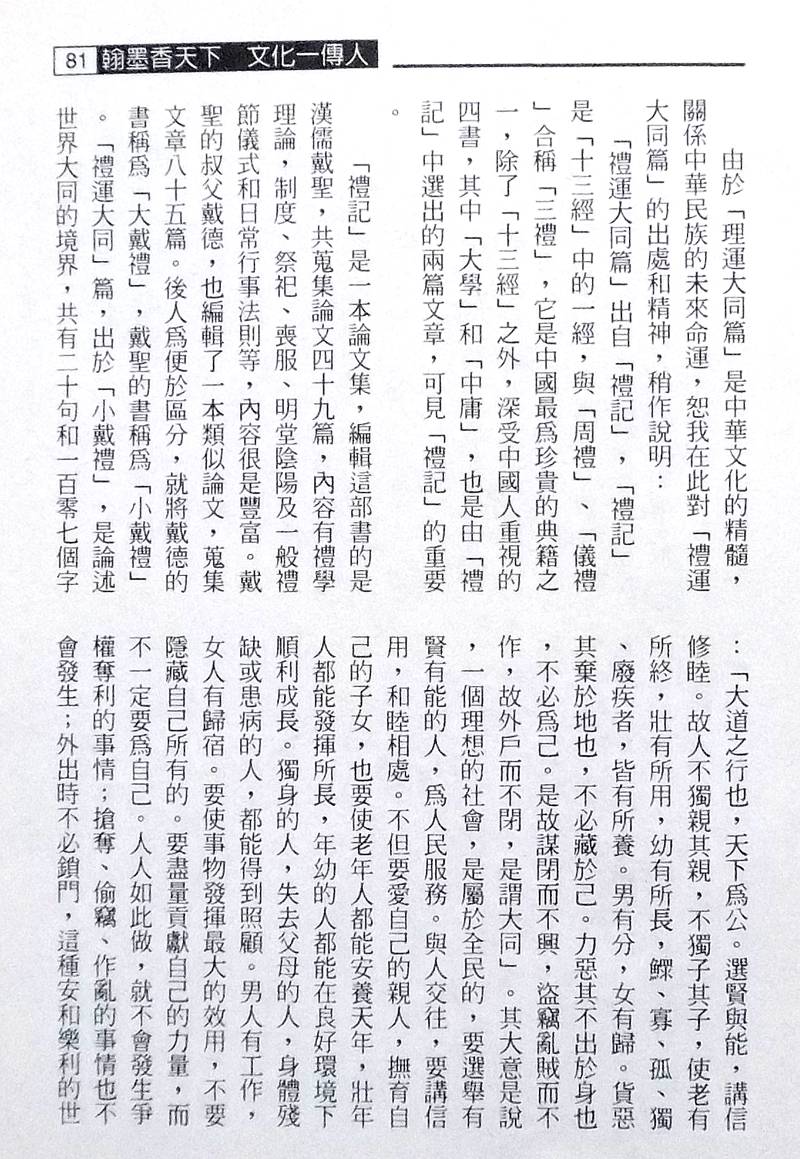 81 翰墨香天下 文化一傳人
由於「理運大同篇」是中華文化的精髓，
關係中華民族的未來命運，恕我在此對「禮運
大同篇」的出處和精神，稍作說明：
「禮運大同篇」出自「禮記」，「禮記」
是「十三經」中的一經，與「周禮」、「儀禮
」合稱「三禮」，它是中國最爲珍貴的典籍之
一，除了「十三經」之外，深受中國人重視的
四書，其中「大學」和「中庸」，也是由「禮
記」中選出的兩篇文章，可見「禮記」的重要
。
「禮記」是一本論文集，編輯這部書的是
漢儒戴聖，共蒐集論文四十九篇，內容有禮學
理論，制度、祭祀、喪服、明堂陰陽及一般禮
節儀式和日常行事法則等，內容很是豐富。戴
聖的叔父戴德，也編輯了一本類似論文，蒐集
文章八十五篇。後人爲便於區分，就將戴德的
書稱爲「大戴禮」，戴聖的書稱爲「小戴禮」
。「禮運大同」篇，出於「小戴禮」，是論述
世界大同的境界，共有二十句和一百零七個字
：「大道之行也，天下爲公。選賢與能，講信
修睦。故人不獨親其親，不獨子其子，使老有
所終，壯有所用，幼有所長，鰥、寡、孤、獨
、廢疾者，皆有所養。男有分，女有歸。貨惡
其棄於地也，不必藏於己。力惡其不出於身也
，不必爲己。是故謀閉而不興，盜竊亂賊而不
作，故外戶而不閉，是謂大同」。其大意是說
，一個理想的社會，是屬於全民的，要選舉有
賢有能的人，爲人民服務。與人交往，要講信
用，和睦相處。不但要愛自己的親人，撫育自
己的子女，也要使老年人都能安養天年，壯年
人都能發揮所長，年幼的人都能在良好環境下
順利成長。獨身的人，失去父母的人，身體殘
缺或患病的人，都能得到照顧。男人有工作，
女人有歸宿。要使事物發揮最大的效用，不要
隱藏自己所有的。要盡量貢獻自己的力量，而
不一定要爲自己。人人如此做，就不會發生爭
權奪利的事情；搶奪、偷竊、作亂的事情也不
會發生；外出時不必鎖門，這種安和樂利的世